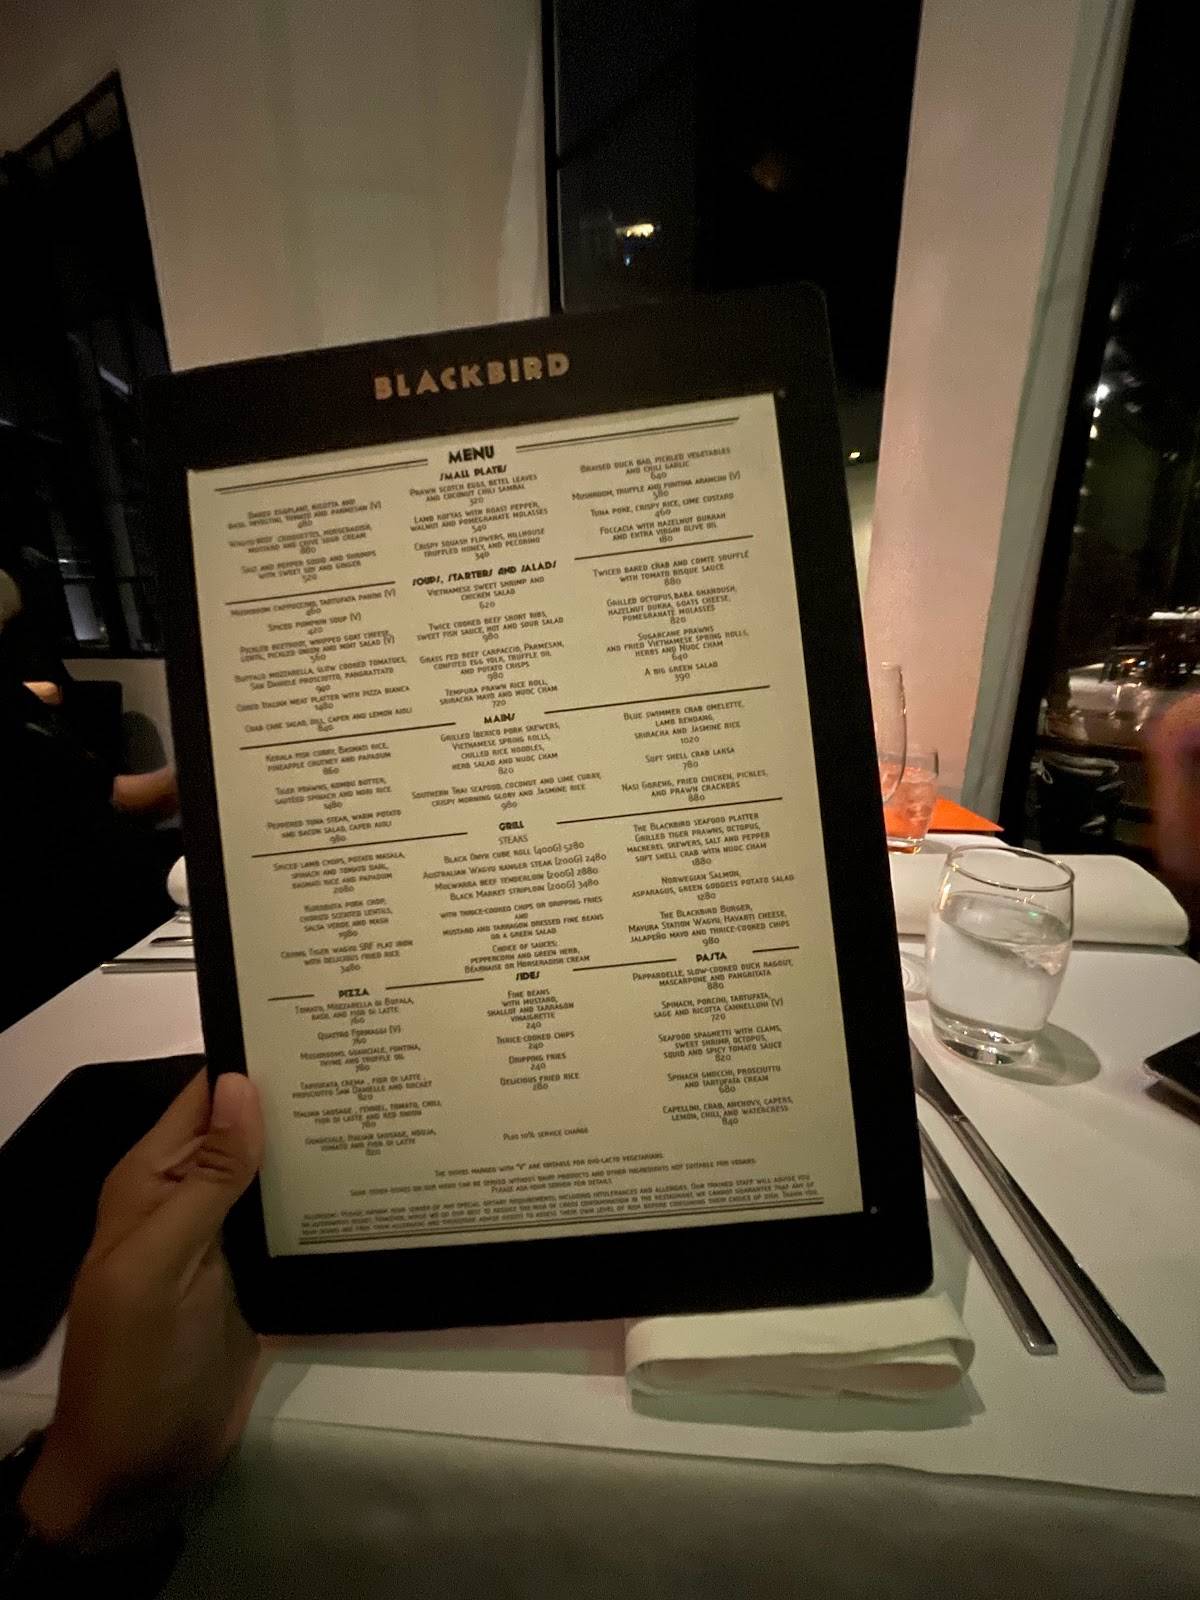 BLACKBIRD
MENU
SMALL PLATES
BAKED EGGPLANT, RICOTTA AND
BASIL INVOLTINI, TOMATO AND PARMESAN (V)
480
WAGYU BEEF CROQUETTES, HORSERADISH,
MUSTARD AND CHIVE SOUR CREAM
880
SALT AND PEPPER SQUID AND SHRIMPS
WITH SWEET SOY AND GINGER
520
PRAWN SCOTCH EGGS, BETEL LEAVES
AND COCONUT CHILI SAMBAL
320
LAMB KOFTAS WITH ROAST PEPPER,
WALNUT AND POMEGRANATE MOLASSES
540
CRISPY SQUASH FLOWERS, HILLHOUSE
TRUFFLED HONEY, AND PECORINO
340
BRAISED DUCK BAO, PICKLED VEGETABLES
AND CHILI GARLIC
640
MUSHROOM, TRUFFLE AND FONTINA ARANCINI (V)
580
TUNA POKE, CRISPY RICE, LIME CUSTARD
460
FOCCACIA WITH HAZELNUT DUKKAH
AND EXTRA VIRGIN OLIVE OIL
180
SOUPS, STARTERS AND SALADS
MUSHROOM CAPPUCCINO, TARTUFATA PANINI (V)
460
SPICED PUMPKIN SOUP (V)
420
PICKLED BEETROOT, WHIPPED GOAT CHEESE,
LENTIL, PICKLED ONION AND MINT SALAD (V)
560
BUFFALO MOZZARELLA, SLOW COOKED TOMATOES,
SAN DANIELE PROSCIUTTO, PANGRATTATO
940
CURED ITALIAN MEAT PLATTER WITH PIZZA BIANCA
1480
CRAB CAKE SALAD, DILL, CAPER AND LEMON AIOLI
840
VIETNAMESE SWEET SHRIMP AND
CHICKEN SALAD
620
TWICE COOKED BEEF SHORT RIBS,
SWEET FISH SAUCE, HOT AND SOUR SALAD
980
GRASS FED BEEF CARPACCIO, PARMESAN,
CONFITED EGG YOLK, TRUFFLE OIL
AND POTATO CRISPS
980
TEMPURA PRAWN RICE ROLL,
SRIRACHA MAYO AND NUOC CHAM
720
TWICED BAKED CRAB AND COMTE SOUFFLÉ
WITH TOMATO BISQUE SAUCE
880
GRILLED OCTOPUS, BABA GHANOUSH,
HAZELNUT DUKKA, GOATS CHEESE,
POMEGRANATE MOLASSES
820
SUGARCANE PRAWNS
AND FRIED VIETNAMESE SPRING ROLLS,
HERBS AND NUOC CHAM
640
A BIG GREEN SALAD
390
MAINS
KERALA FISH CURRY, BASMATI RICE,
PINEAPPLE CHUTNEY AND PAPADUM
860
TIGER PRAWNS, KOMBU BUTTER,
SAUTÉED SPINACH AND NORI RICE
1480
PEPPERED TUNA STEAK, WARM POTATO
AND BACON SALAD, CAPER AIOLI
980
GRILLED IBERICO PORK SKEWERS,
VIETNAMESE SPRING ROLLS,
CHILLED RICE NOODLES,
HERB SALAD AND NUOC CHAM
820
SOUTHERN THAI SEAFOOD, COCONUT AND LIME CURRY,
CRISPY MORNING GLORY AND JASMINE RICE
980
BLUE SWIMMER CRAB OMELETTE,
LAMB RENDANG,
SRIRACHA AND JASMINE RICE
1020
SOFT SHELL CRAB LAKSA
780
NASI GORENG, FRIED CHICKEN, PICKLES,
AND PRAWN CRACKERS
880
GRILL
STEAKS
SPICED LAMB CHOPS, POTATO MASALA,
SPINACH AND TOMATO DAHL,
BASMATI RICE AND PAPADUM
2080
KUROBUTA PORK CHOP,
CHORIZO SCENTED LENTILS,
SALSA VERDE AND MASH
1980
CRYING TIGER WAGYU SRF FLAT IRON
WITH DELICIOUS FRIED RICE
3480
BLACK ONYX CUBE ROLL (400G) 5280
AUSTRALIAN WAGYU HANGER STEAK (200G) 2480
MULWARRA BEEF TENDERLOIN (200G) 2880
BLACK MARKET STRIPLOIN (200G) 3480
WITH THRICE-COOKED CHIPS OR DRIPPING FRIES
AND
MUSTARD AND TARRAGON DRESSED FINE BEANS
OR A GREEN SALAD
CHOICE OF SAUCES:
PEPPERCORN AND GREEN HERB,
BÉARNAISE OR HORSERADISH CREAM
THE BLACKBIRD SEAFOOD PLATTER
GRILLED TIGER PRAWNS, OCTOPUS,
MACKEREL SKEWERS, SALT AND PEPPER
SOFT SHELL CRAB WITH NUOC CHAM
1880
NORWEGIAN SALMON,
ASPARAGUS, GREEN GODDESS POTATO SALAD
1280
THE BLACKBIRD BURGER,
MAYURA STATION WAGYU, HAVARTI CHEESE,
JALAPEÑO MAYO AND THRICE-COOKED CHIPS
980
PIZZA
TOMATO, MOZZARELLA DI BUFALA,
BASIL AND FIOR DI LATTE
760
QUATTRO FORMAGGI (V)
760
MUSHROOMS, GUANCIALE, FONTINA,
THYME AND TRUFFLE OIL
780
TARTUFATA CREMA, FIOR DI LATTE,
PROSCIUTTO SAN DANIELLE AND ROCKET
820
ITALIAN SAUSAGE, FENNEL, TOMATO, CHILI,
FIOR DI LATTE AND RED ONION
780
GUANCIALE, ITALIAN SAUSAGE, NDUJA,
TOMATO AND FIOR DI LATTE
820
SIDES
FINE BEANS
WITH MUSTARD,
SHALLOT AND TARRAGON
VINAIGRETTE
240
THRICE-COOKED CHIPS
240
DRIPPING FRIES
240
DELICIOUS FRIED RICE
280
PLUS 10% SERVICE CHARGE
PASTA
PAPPARDELLE, SLOW-COOKED DUCK RAGOUT,
MASCARPONE AND PANGRITATA
880
SPINACH, PORCINI, TARTUFATA,
SAGE AND RICOTTA CANNELLONI (V)
720
SEAFOOD SPAGHETTI WITH CLAMS,
SWEET SHRIMP, OCTOPUS,
SQUID AND SPICY TOMATO SAUCE
820
SPINACH GNOCCHI, PROSCIUTTO
AND TARTUFATA CREAM
680
CAPELLINI, CRAB, ANCHOVY, CAPERS,
LEMON, CHILI, AND WATERCRESS
840
THE DISHES MARKED WITH "V" ARE SUITABLE FOR OVO-LACTO VEGETARIANS.
SOME OTHER DISHES ON OUR MENU CAN BE SERVED WITHOUT DAIRY PRODUCTS AND OTHER INGREDIENTS NOT SUITABLE FOR VEGANS.
PLEASE ASK YOUR SERVER FOR DETAILS.
ALLERGENS: PLEASE INFORM YOUR SERVER OF ANY SPECIAL DIETARY REQUIREMENTS, INCLUDING INTOLERANCES AND ALLERGIES. OUR TRAINED STAFF WILL ADVISE YOU